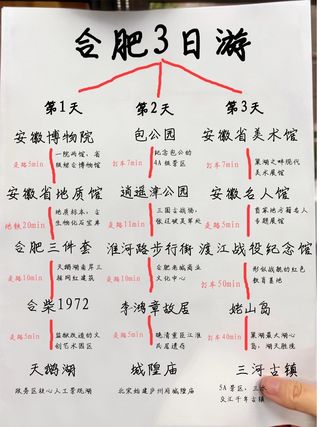 合肥3日游
第1天
第2天
第3天
安徽博物院
包公园
安徽省美术馆
走路5min
一院两馆，省
打车7min
纪念包公的
4A级景区
打车7min
巢湖之畔现代
美术展馆
安徽省地质馆
逍遥津公园
安徽名人馆
地铁20min
地质标本，古
生物化石宝库
走路11min
三国古战场，
张辽威震军处
走路5min
专题展馆
合肥三件套
淮河路步行街
渡江战役纪念馆
走路10min
天鹅湖南岸三
座网红建筑
走路10min
合肥老城商业
文化中心
打车50min
形似战舰的红色
教育基地
合柴1972
李鸿章故居
姥山岛
走路5min
监狱改造的文
创艺术园区
走路5min
晚清重臣江淮
民居遗存
打车40min
巢湖最大湖心
岛，湖天胜境
天鹅湖
城隍庙
三河古镇
政务区核心人工景观湖
北宋始建庐州府城隍庙
5A景区，三水
交汇千年古镇